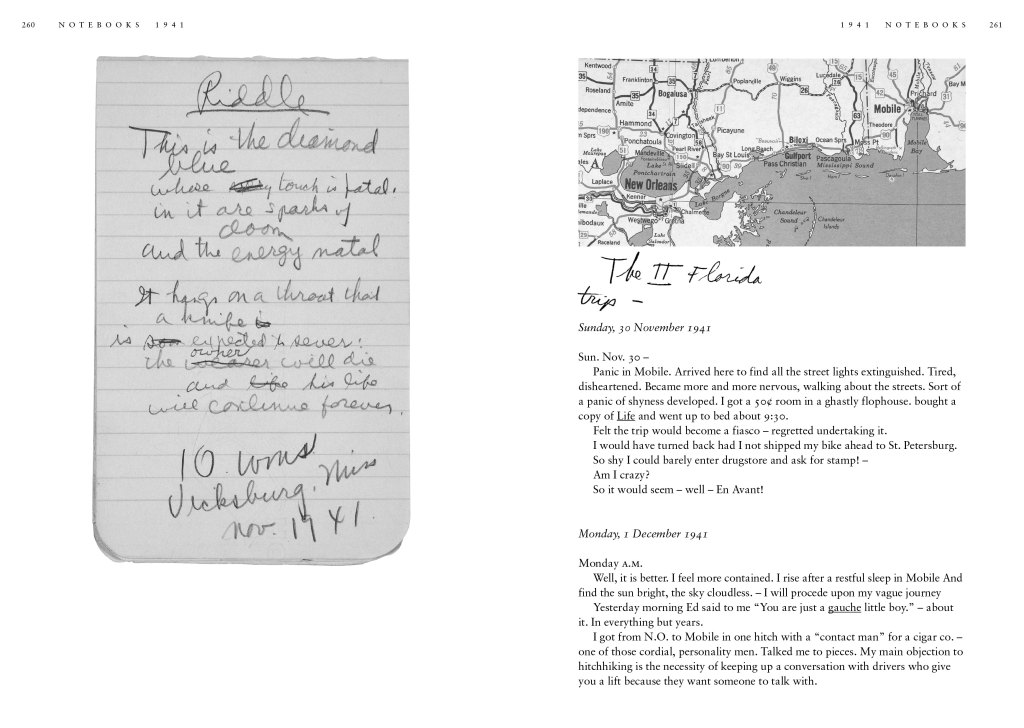 260 NOTEBOOKS 1941
Riddle
This is the diamond
blue
whose touch is fatal.
in it are sparks of
doom
and the energy natal
It hangs on a throat that
a knife is
is expected to sever:
owner
the wearer will die
and life his life
will continue forever.
10. wms
Vicksburg. Miss
nov. 1941.
1941 NOTEBOOKS 261
Kentwood
Franklinton
Poplarville
Wiggins
Lucedale
Prichard
Bay M
Roseland
Bogalusa
Amite
Mobile
Independence
Hammond
Picayune
Theodore
n Sprs
Covington
Ponchatoula
Mandeville
Pearl River
Biloxi
Ocean Sprs
Moss Pt
Mobile
Bay
Slidell
Bay St Louis
Long Beach
Gulfport
Pascagoula
Lake
Pontchartrain
Pass Christian
Mississippi Sound
Laplace
New Orleans
Kenner
Lake Borgne
Westwego
Chalmette
Chandeleur
Sound
Chandeleur
Islands
Raceland
Lake
Salvador
The II Florida
trip –
Sunday, 30 November 1941
Sun. Nov. 30 –
Panic in Mobile. Arrived here to find all the street lights extinguished. Tired,
disheartened. Became more and more nervous, walking about the streets. Sort of
a panic of shyness developed. I got a 50¢ room in a ghastly flophouse. bought a
copy of Life and went up to bed about 9:30.
Felt the trip would become a fiasco – regretted undertaking it.
I would have turned back had I not shipped my bike ahead to St. Petersburg.
So shy I could barely enter drugstore and ask for stamp! –
Am I crazy?
So it would seem – well – En Avant!
Monday, 1 December 1941
Monday A.M.
Well, it is better. I feel more contained. I rise after a restful sleep in Mobile And
find the sun bright, the sky cloudless. – I will procede upon my vague journey
Yesterday morning Ed said to me “You are just a gauche little boy.” – about
it. In everything but years.
I got from N.O. to Mobile in one hitch with a “contact man” for a cigar co. –
one of those cordial, personality men. Talked me to pieces. My main objection to
hitchhiking is the necessity of keeping up a conversation with drivers who give
you a lift because they want someone to talk with.